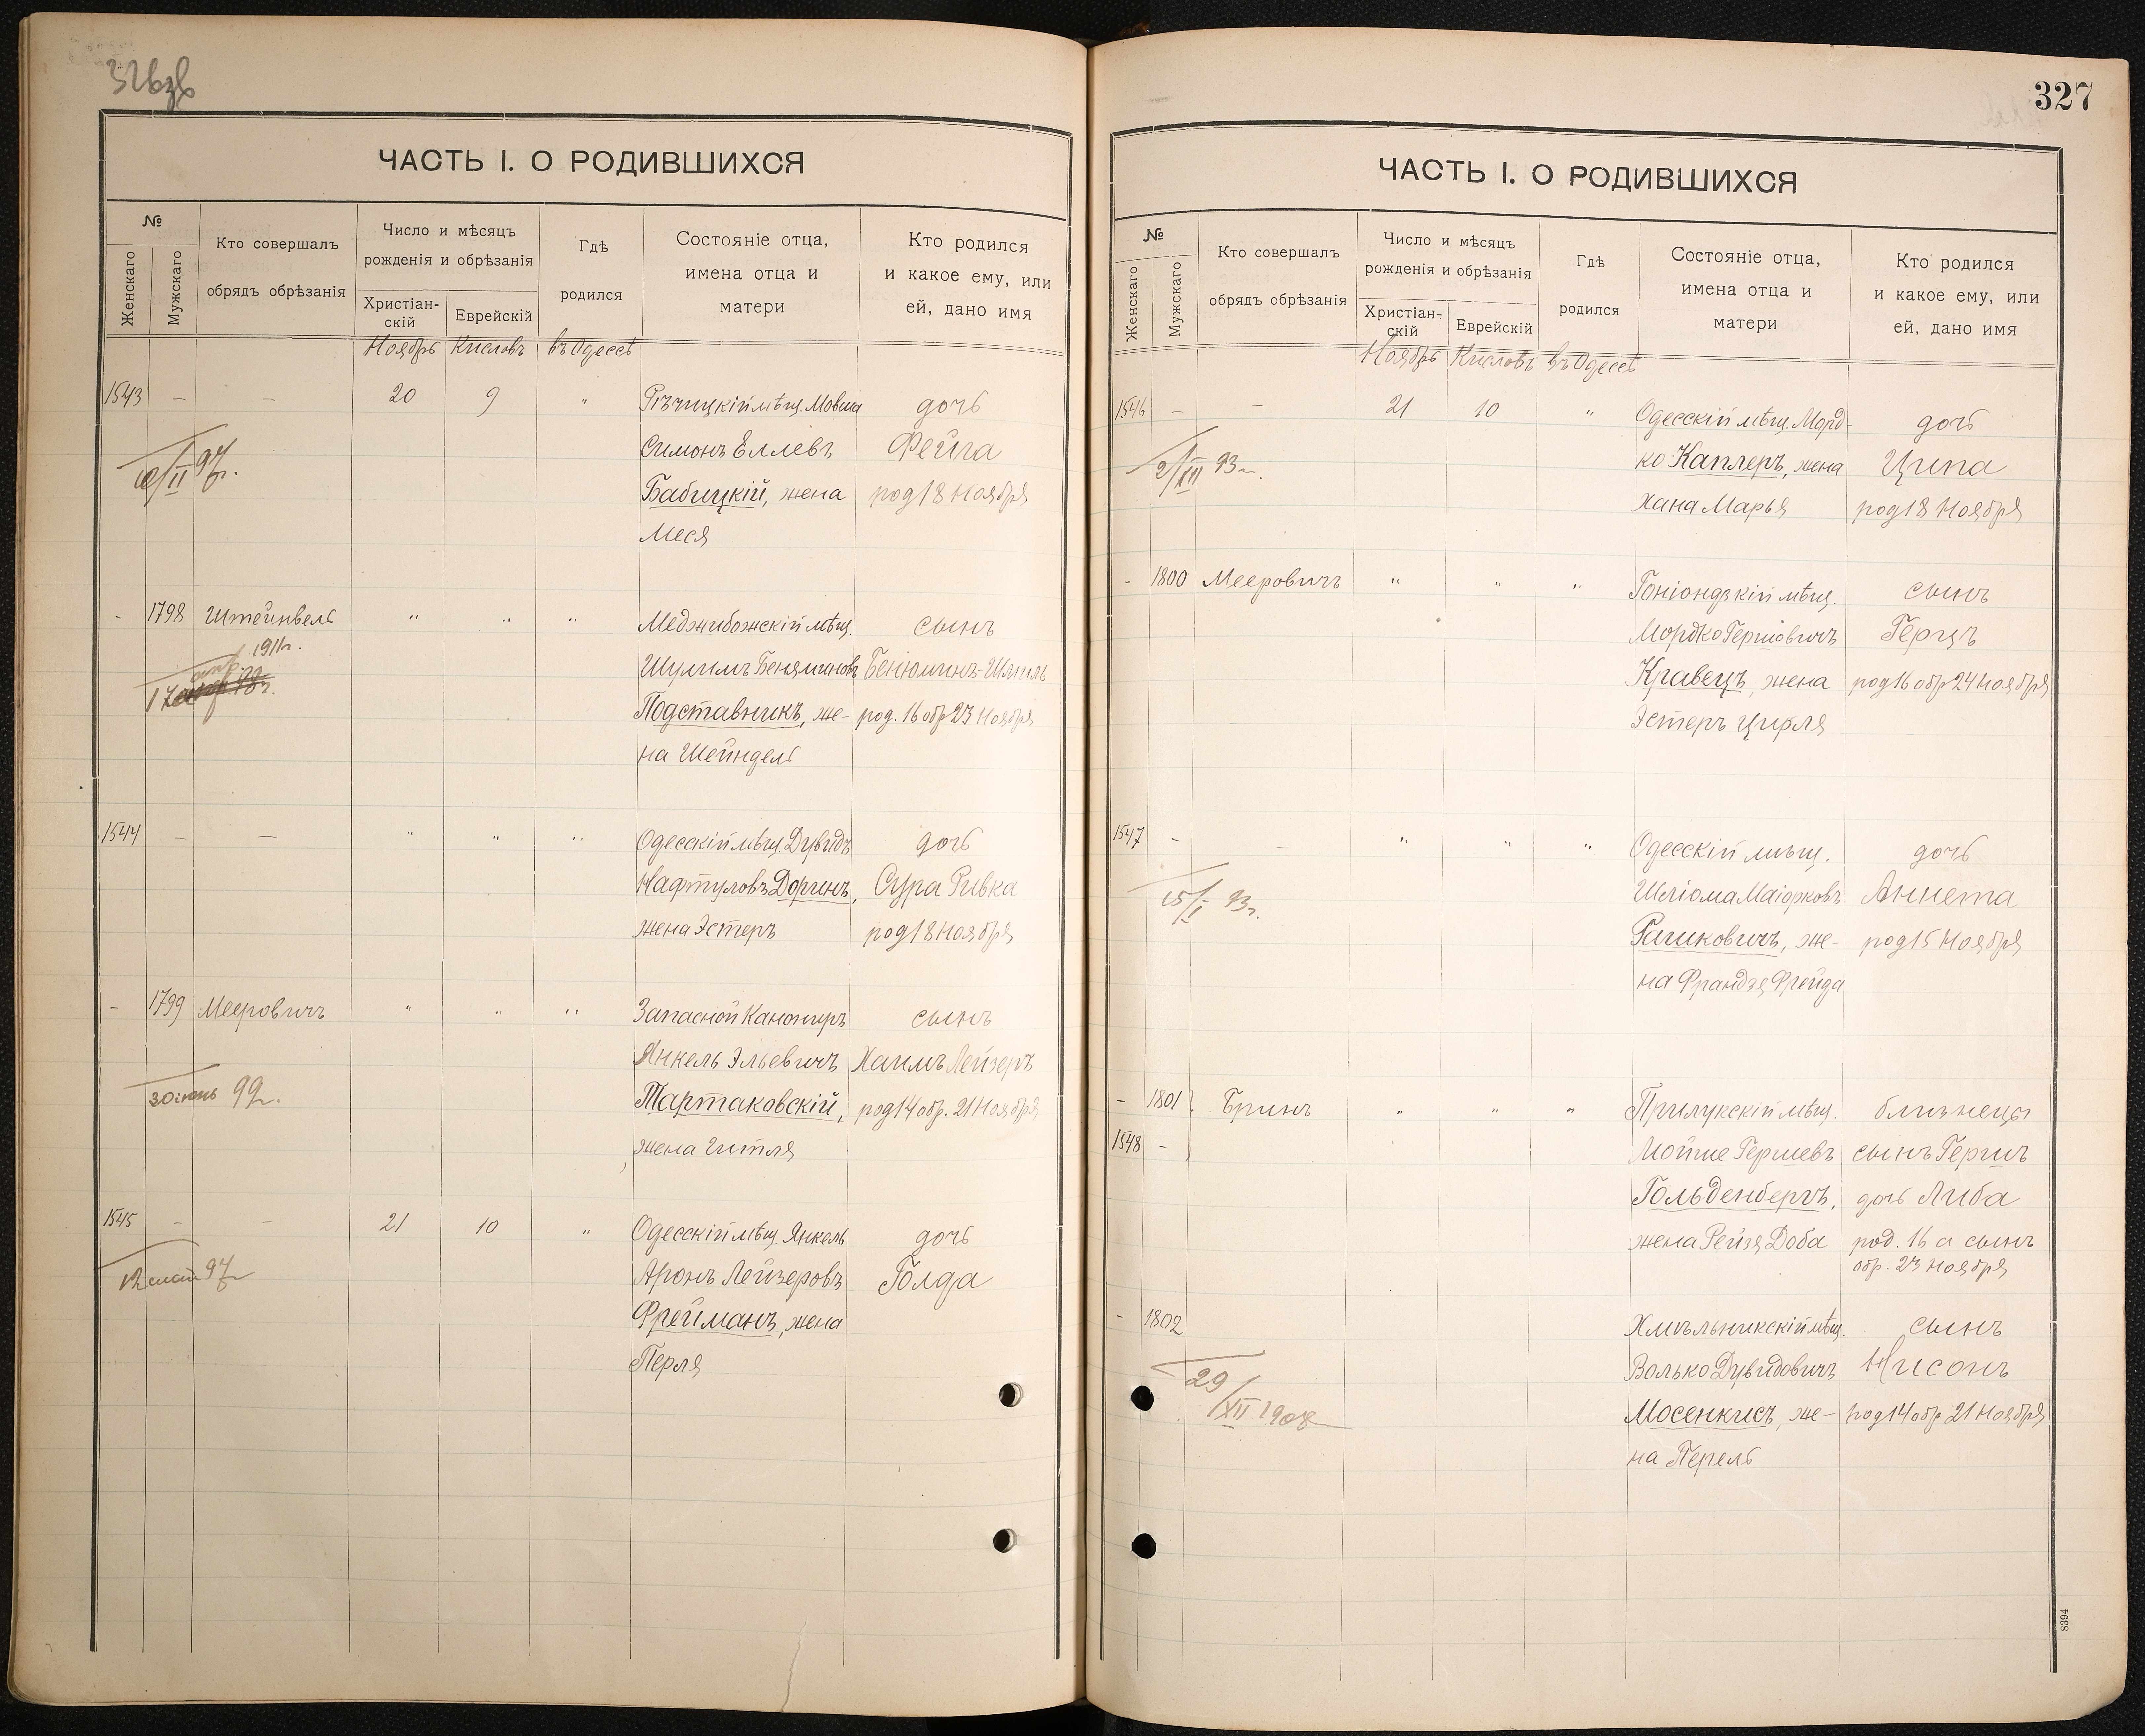 326 зв
ЧАСТЬ I. О РОДИВШИХСЯ
№
Женскаго
Мужскаго
Кто совершалъ
обрядъ обрѣзанія
Число и мѣсяцъ
рожденія и обрѣзанія
Христіан-
скій
Еврейскій
Гдѣ
родился
Состояніе отца,
имена отца и
матери
Кто родился
и какое ему, или
ей, дано имя
Ноябрь Кисловъ въ Одессѣ
1543 — — 20 9 " Рѣчицкій мѣщ. Мовша дочь
Симонъ Еллевъ Фейга
Бабицкій, жена род 18 Ноября
Меся
10/II 97г.
- 1798 Штейнвель " " " Меджибожскій мѣщ. сынъ
1911г.
Шулимъ Беняминовъ Беніоминъ-Шмиль
17
Подставникъ, же- род. 16 обр 23 Ноября
на Шейндель
1544 — — " " " Одесскій мѣщ. Дувидъ дочь
Нафтуловъ Доринъ, Сура Ривка
жена Эстеръ род 18 Ноября
- 1799 Мееровичъ " " " Запасной Канониръ сынъ
Янкель Эльевичъ Хаимъ Лейзеръ
30 іюнь 99г.
Тартаковскій, род 14 обр. 21 Ноября
жена Гитля
1545 - - 21 10 " Одесскій мѣщ. Янкель дочь
Аронъ Лейзеровъ Голда
12 97г
Фрейманъ, жена
Перля
327
ЧАСТЬ I. О РОДИВШИХСЯ
№
Женскаго
Мужскаго
Кто совершалъ
обрядъ обрѣзанія
Число и мѣсяцъ
рожденія и обрѣзанія
Христіан-
скій
Еврейскій
Гдѣ
родился
Состояніе отца,
имена отца и
матери
Кто родился
и какое ему, или
ей, дано имя
Ноябрь Кисловъ въ Одессѣ
1546 — — 21 10 " Одесскій мѣщ. Морд- дочь
ко Каплеръ, жена Ципа
2/XII 93г.
Хана Марья род 18 Ноября
- 1800 Мееровичъ " " " Гоніондзкій мѣщ. сынъ
Мордко Гершовичъ Герцъ
Кравецъ, жена род 16 обр 24 Ноября
Эстеръ Цирля
1547 - - " " " Одесскій мѣщ. дочь
Шліома Маіорковъ Аннета
15/I 93г.
Рашковичъ, же- род 15 Ноября
на Франдзя Фрейда
- 1801 Бринъ " " " Прилукскій мѣщ. близнецы
1548 - Мойше Гершевъ сынъ Гершъ
Гольденбергъ, дочь Либа
жена Рейзя Доба род. 16 а сынъ
обр. 23 Ноября
- 1802 Хмѣльникскій мѣщ. сынъ
Волько Дувидовичъ Нисонъ
29/XII 1908
Мосенкисъ, же- род 14 обр 21 Ноября
на Перель
8394